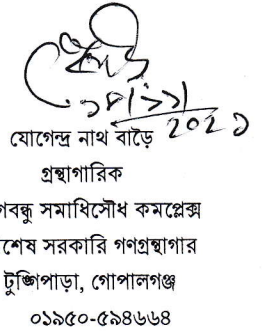 যোগেন্দ্র নাথ বাড়ৈ
গ্রন্থাগারিক
গবন্ধু সমাধিসৌধ কমপ্লেক্স
শেষ সরকারি গণগ্রন্থাগার
টুঙ্গিপাড়া, গোপালগঞ্জ
০১৯৫০-৫৯৪৬৬৪